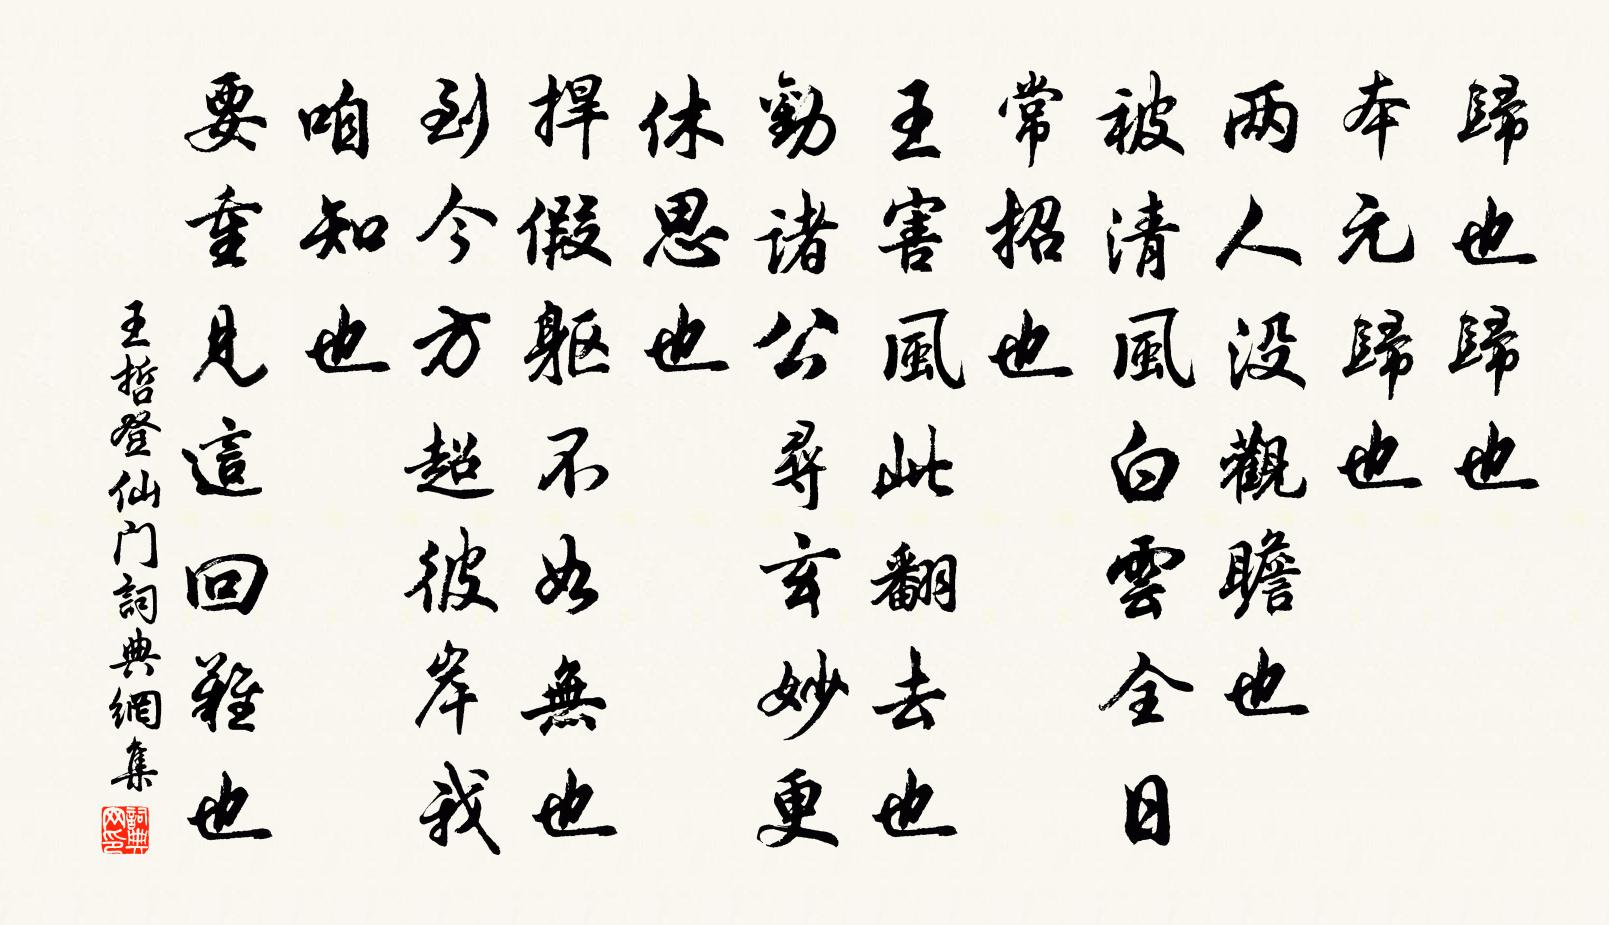 歸也歸也
本元歸也
两人没觀瞻也
被清風白雲全日
常招也
王害風此翻去也
勸诸公尋玄妙更
休思也
捍假軀不如無也
到今方超彼岸我
咱知也
要重見這回難也
王哲登仙门詞典網集
詞典網印